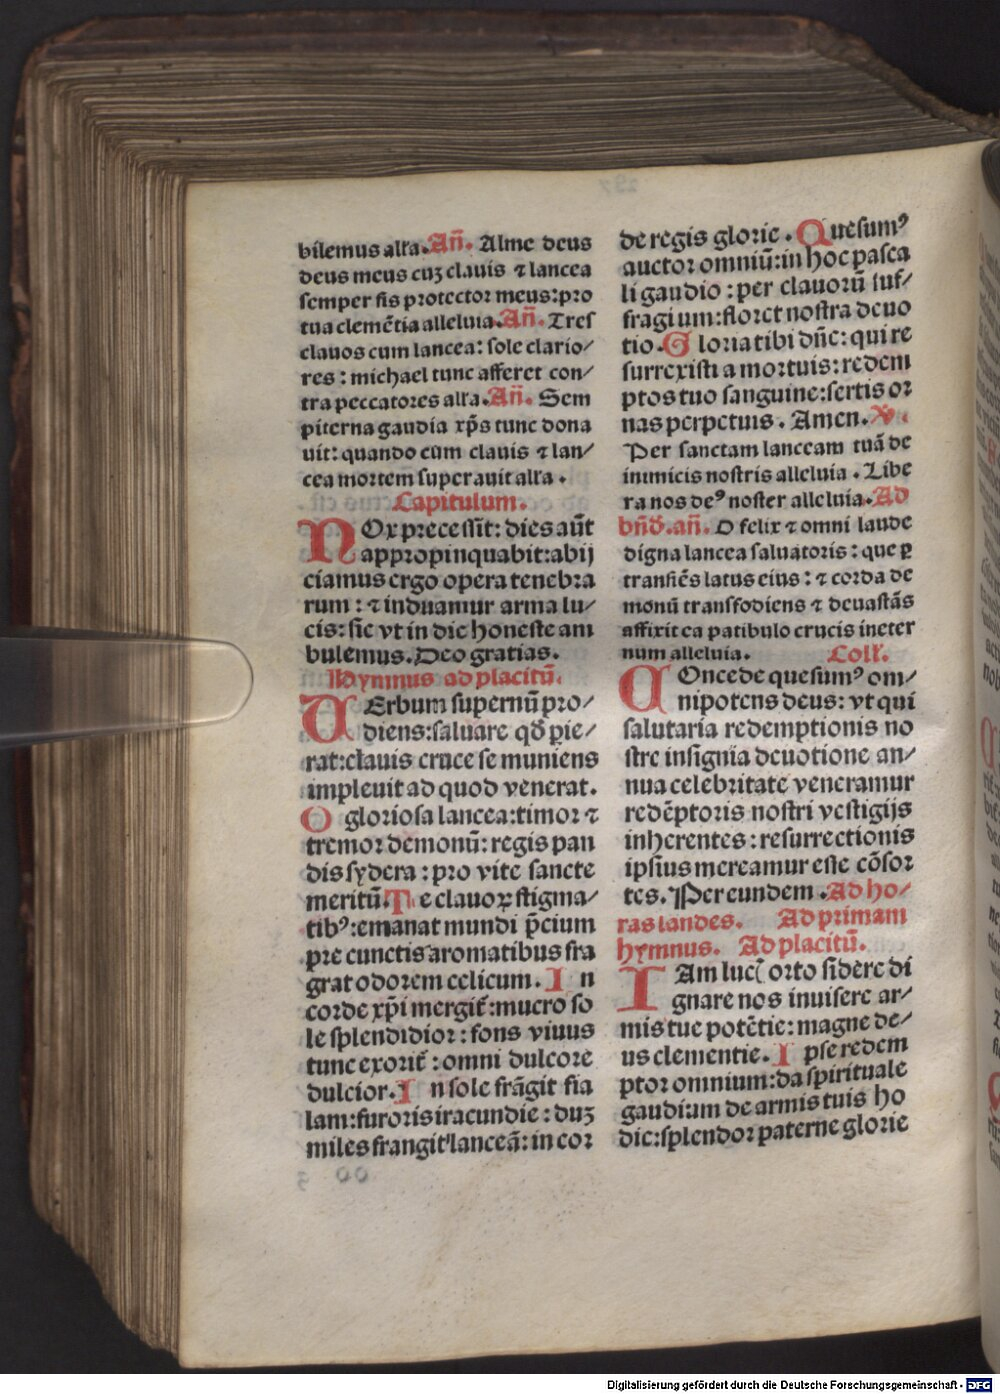 bilemus alľa. Añ. Alme deus
deus meus cuꝫ clauis ⁊ lancea
semper sis protector meus: pro
tua clemẽtia alleluia. Añ. Tres
clauos cum lancea: sole clario/
res: michael tunc afferet con/
tra peccatores alľa. Añ. Sem
piterna gaudia xp̃s tunc dona
uit: quando cum clauis ⁊ lan/
cea mortem superauit alľa.
Capitulum.
NOx precessit: dies aũt
appropinquabit: abij
ciamus ergo opera tenebra
rum: ⁊ induamur arma lu/
cis: sic vt in die honeste am
bulemus. Deo gratias.
Hymnus ad placitũ.
VErbum supernũ pro/
diens: saluare qđ pie/
rat: clauis cruce se muniens
impleuit ad quod venerat.
O gloriosa lancea: timor ⁊
tremor demonũ: regis pan
dis sydera: pro vite sancte
meritũ. Te clauoꝝ stigma/
tibꝰ: emanat mundi p̃cium
pre cunctis aromatibus fra
grat odorem celicum. In
corde xp̃i mergit᷑: mucro so
le splendidior: fons viuus
tunc exorit᷑: omni dulcore
dulcior. In sole frãgit fia
lam: furoris iracundie: duꝫ
miles frangit lanceã: in cor
de regis glorie. Quesumꝰ
auctor omniũ: in hoc pasca
li gaudio: per clauorũ suf/
fragium: floret nostra deuo
tio. Gloria tibi dñe: qui re
surrexisti a mortuis: redem
ptos tuo sanguine: sertis or
nas perpetuis. Amen. ℣.
Per sanctam lanceam tuã de
inimicis nostris alleluia. Libe
ra nos deꝰ noster alleluia. Ad
bñđ. añ. O felix ⁊ omni laude
digna lancea saluatoris: que ꝑ
transiẽs latus eius: ⁊ corda de
monũ transfodiens ⁊ deuastãs
affixit ea patibulo crucis ineter
num alleluia. Coll'.
COncede quesumꝰ om/
nipotens deus: vt qui
salutaria redemptionis no
stre insignia deuotione an/
nua celebritate veneramur
redẽptoris nostri vestigijs
inherentes: resurrectionis
ipsius mereamur esse cõsor
tes. Per eundem. Ad ho/
ras laudes. Ad primam
hymnus. Ad placitũ.
IAm lucꝭ orto sidere di
gnare nos inuisere ar/
mis tue potẽtie: magne de/
us clementie. Ipse redem
ptor omnium: da spirituale
gaudium de armis tuis ho
die: splendor paterne glorie
Digitalisierung gefördert durch die Deutsche Forschungsgemeinschaft - DFG